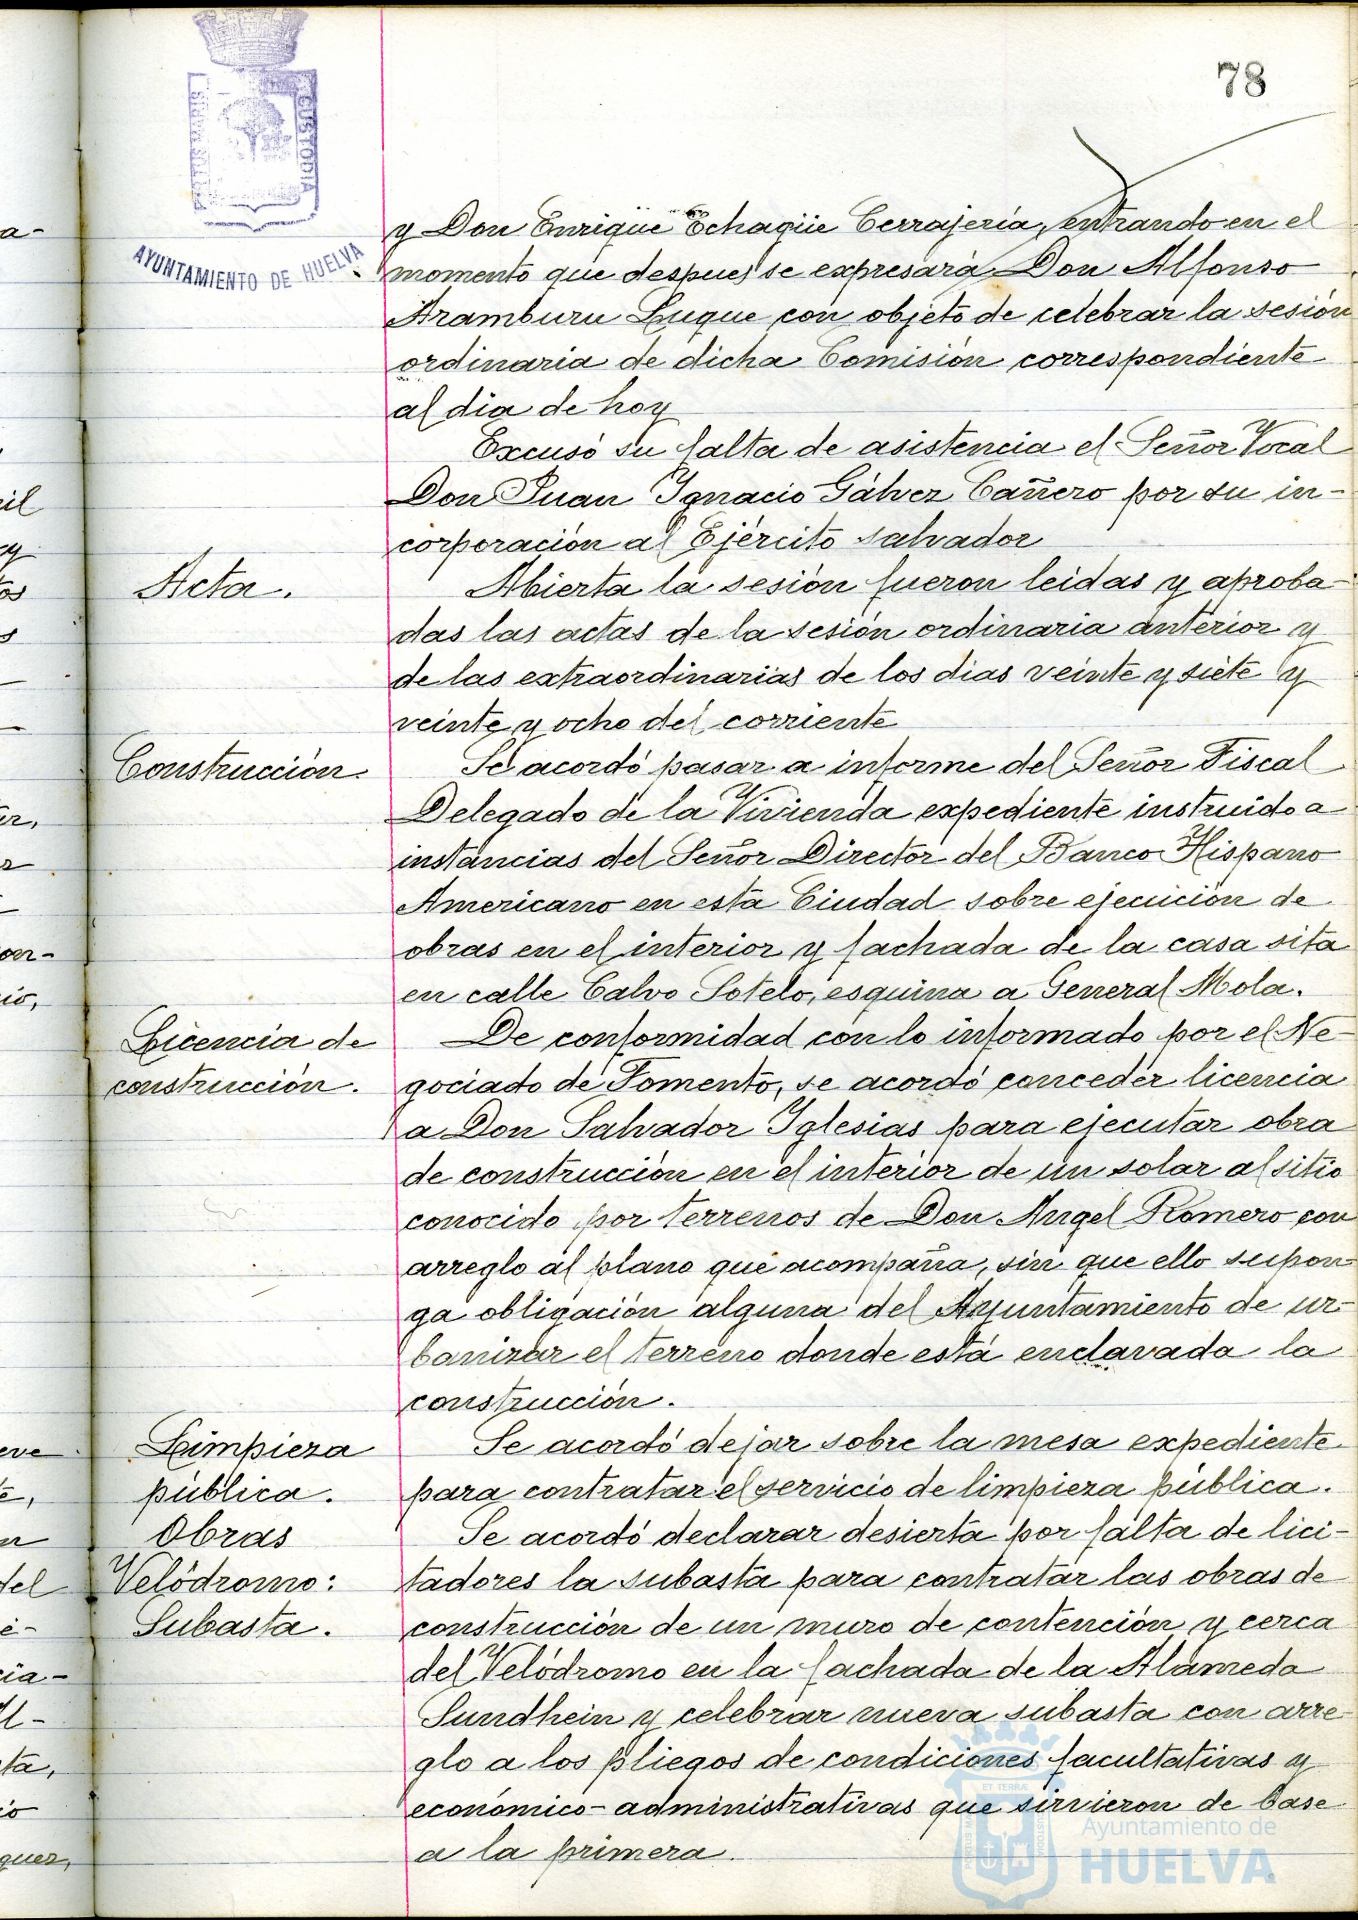 78
PORTUS MARIS
CUSTODIA
AYUNTAMIENTO DE HUELVA
y Don Enrique Echagüe Cerrajería, entrando en el
momento que despues se expresará Don Alfonso
Aramburu Luque con objeto de celebrar la sesión
ordinaria de dicha Comisión correspondiente
al dia de hoy
Excusó su falta de asistencia el Señor Vocal
Don Juan Ygnacio Gálvez Cañero por su in-
corporación al Ejército salvador
Acta.
Abierta la sesión fueron leidas y aproba-
das las actas de la sesión ordinaria anterior y
de las extraordinarias de los dias veinte y siete y
veinte y ocho del corriente
Construcción.
Se acordó pasar a informe del Señor Fiscal
Delegado de la Vivienda expediente instruido a
instancias del Señor Director del Banco Hispano
Americano en esta Ciudad sobre ejecución de
obras en el interior y fachada de la casa sita
en calle Calvo Sotelo, esquina a General Mola.
Licencia de
construcción.
De conformidad con lo informado por el Ne-
gociado de Fomento, se acordó conceder licencia
a Don Salvador Yglesias para ejecutar obra
de construcción en el interior de un solar al sitio
conocido por terrenos de Don Angel Romero con
arreglo al plano que acompaña, sin que ello supon-
ga obligación alguna del Ayuntamiento de ur-
banizar el terreno donde está enclavada la
construcción.
Limpieza
pública.
Se acordó dejar sobre la mesa expediente
para contratar el servicio de limpieza pública.
Obras
Velódromo:
Subasta.
Se acordó declarar desierta por falta de lici-
tadores la subasta para contratar las obras de
construcción de un muro de contención y cerca
del Velódromo en la fachada de la Alameda
Sundhein y celebrar nueva subasta con arre-
glo a los pliegos de condiciones facultativas y
económico-administrativas que sirvieron de base
a la primera.
Ayuntamiento de
HUELVA